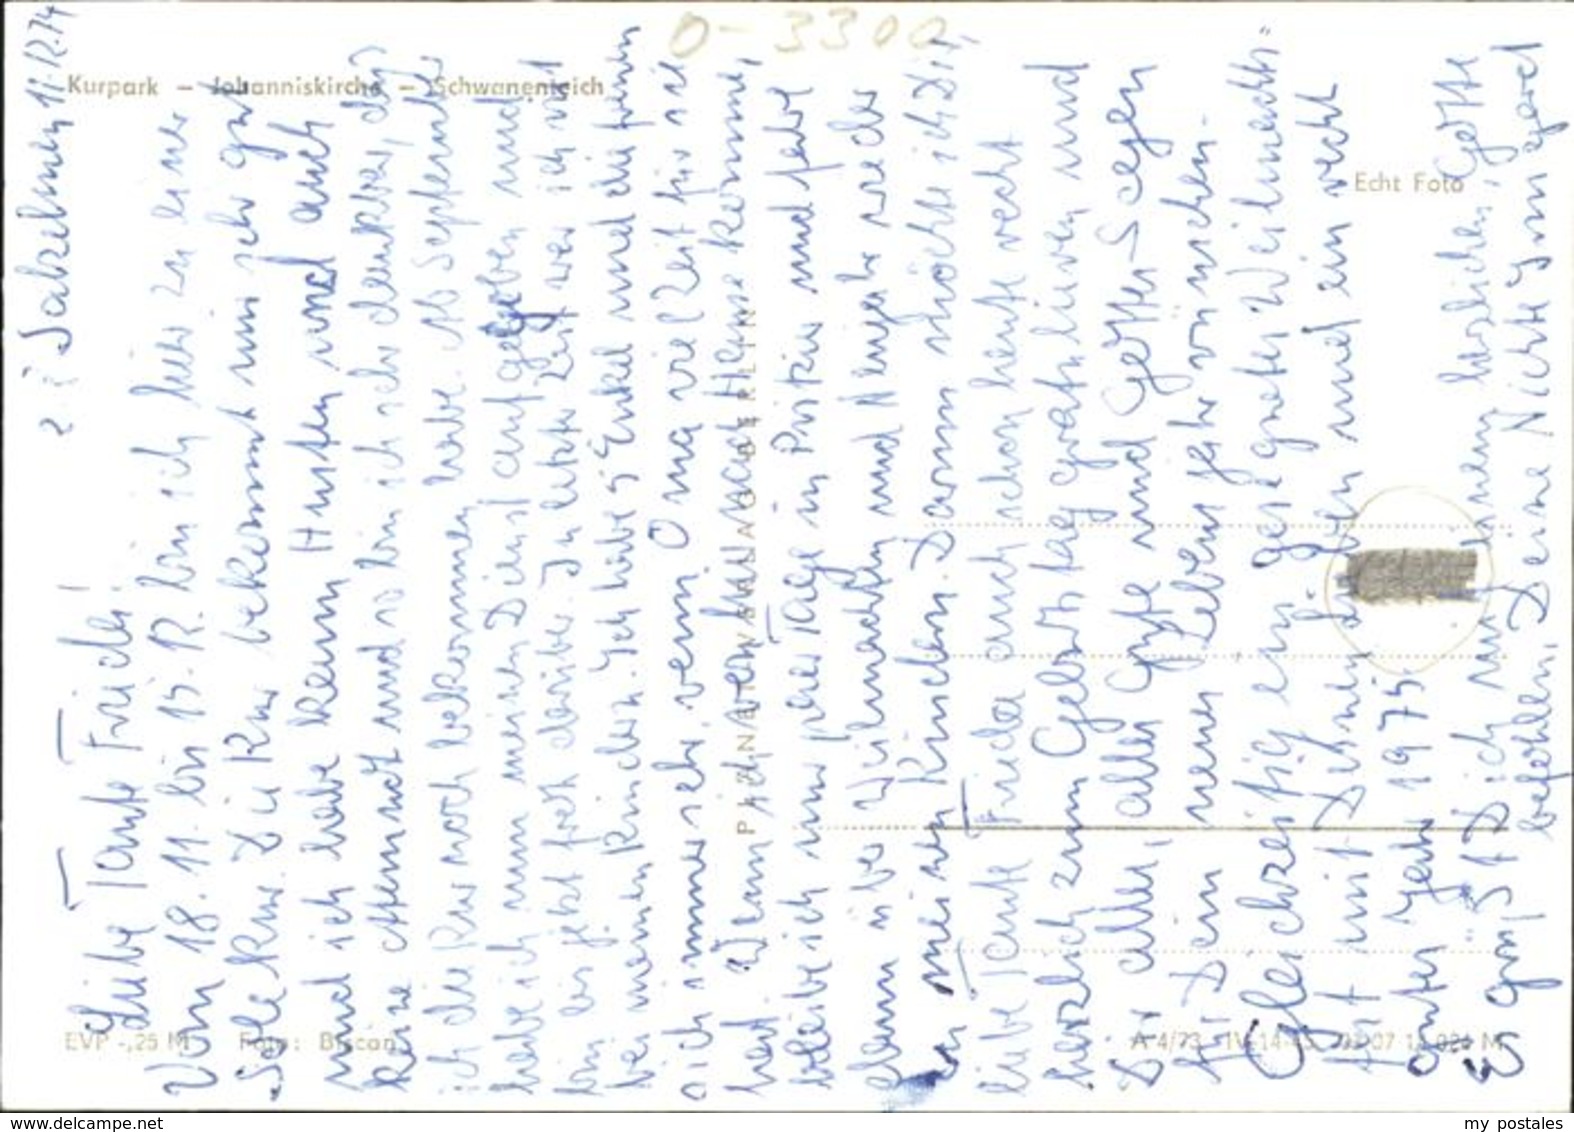 0-3300
Kurpark – Johanniskirche – Schwanenteich
Echt Foto
EVP -,25 M Foto: Biscan
A 4/73 IV-14-45 024 M
z. Z. Salzelmen, 11.12.74
Liebe Tante Friedel!
Vom 18. 11. bis 15. 12. bin ich hier zu einer
Sole Kur. Die Kur bekommt mir sehr gut
und ich habe kaum Husten und auch
keine Atemnot und so bin ich sehr dankbar, daß
ich die Kur noch bekommen habe. Ab September
habe ich nun meinen Dienst aufgegeben und
bin es jetzt froh darüber. In letzter Zeit war ich viel
bei meinen Kindern. Ich habe 5 Enkel und die freuen
sich immer sehr, wenn Oma viel Zeit für sie
hat. Wenn ich von hier nach Hause komme,
bleibe ich nur paar Tage in und fahre
dann über Weihnachten und Neujahr wieder
zu meinen Kindern. Darum möchte ich Dir,
liebe Tante Frieda auch schon heute recht
herzlich zum Geburtstag gratulieren und
Dir alles, alles Gute und Gottes Segen
für Dein neues Lebensjahr wünschen.
Gleichzeitig ein gesegnetes Weihnachts-
fest mit Deinen Lieben und ein recht
gutes Jahr 1975.
Es grüßt Dich nun herzlichen, Gotte
befohlen, Deine Nichte
my-postales.com/delcampe.net
my postales